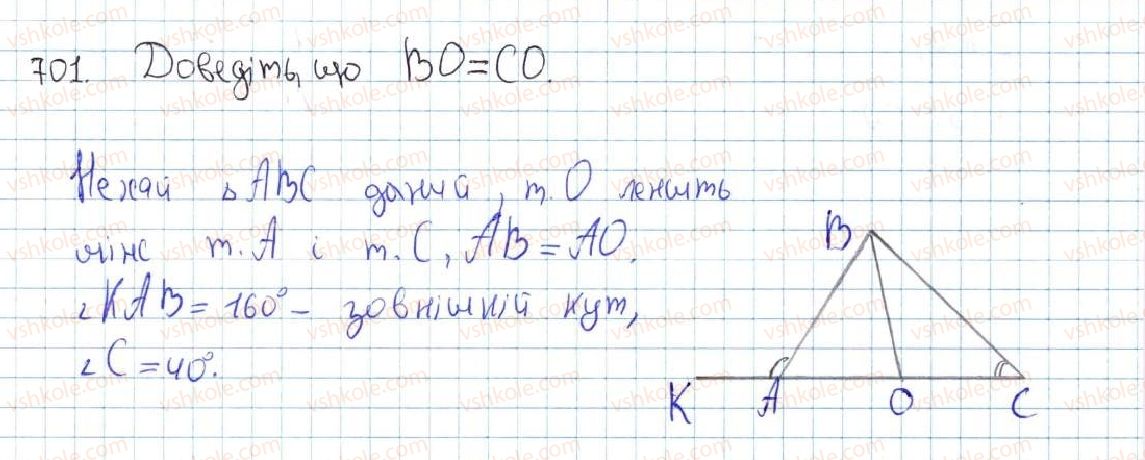 701. Доведіть, що BO=CO.
Нехай △ABC даний, т. O лежить
між т. A і т. C, AB=AO.
∠KAB=160°- зовнішній кут,
∠C=40°.
B
K A O C